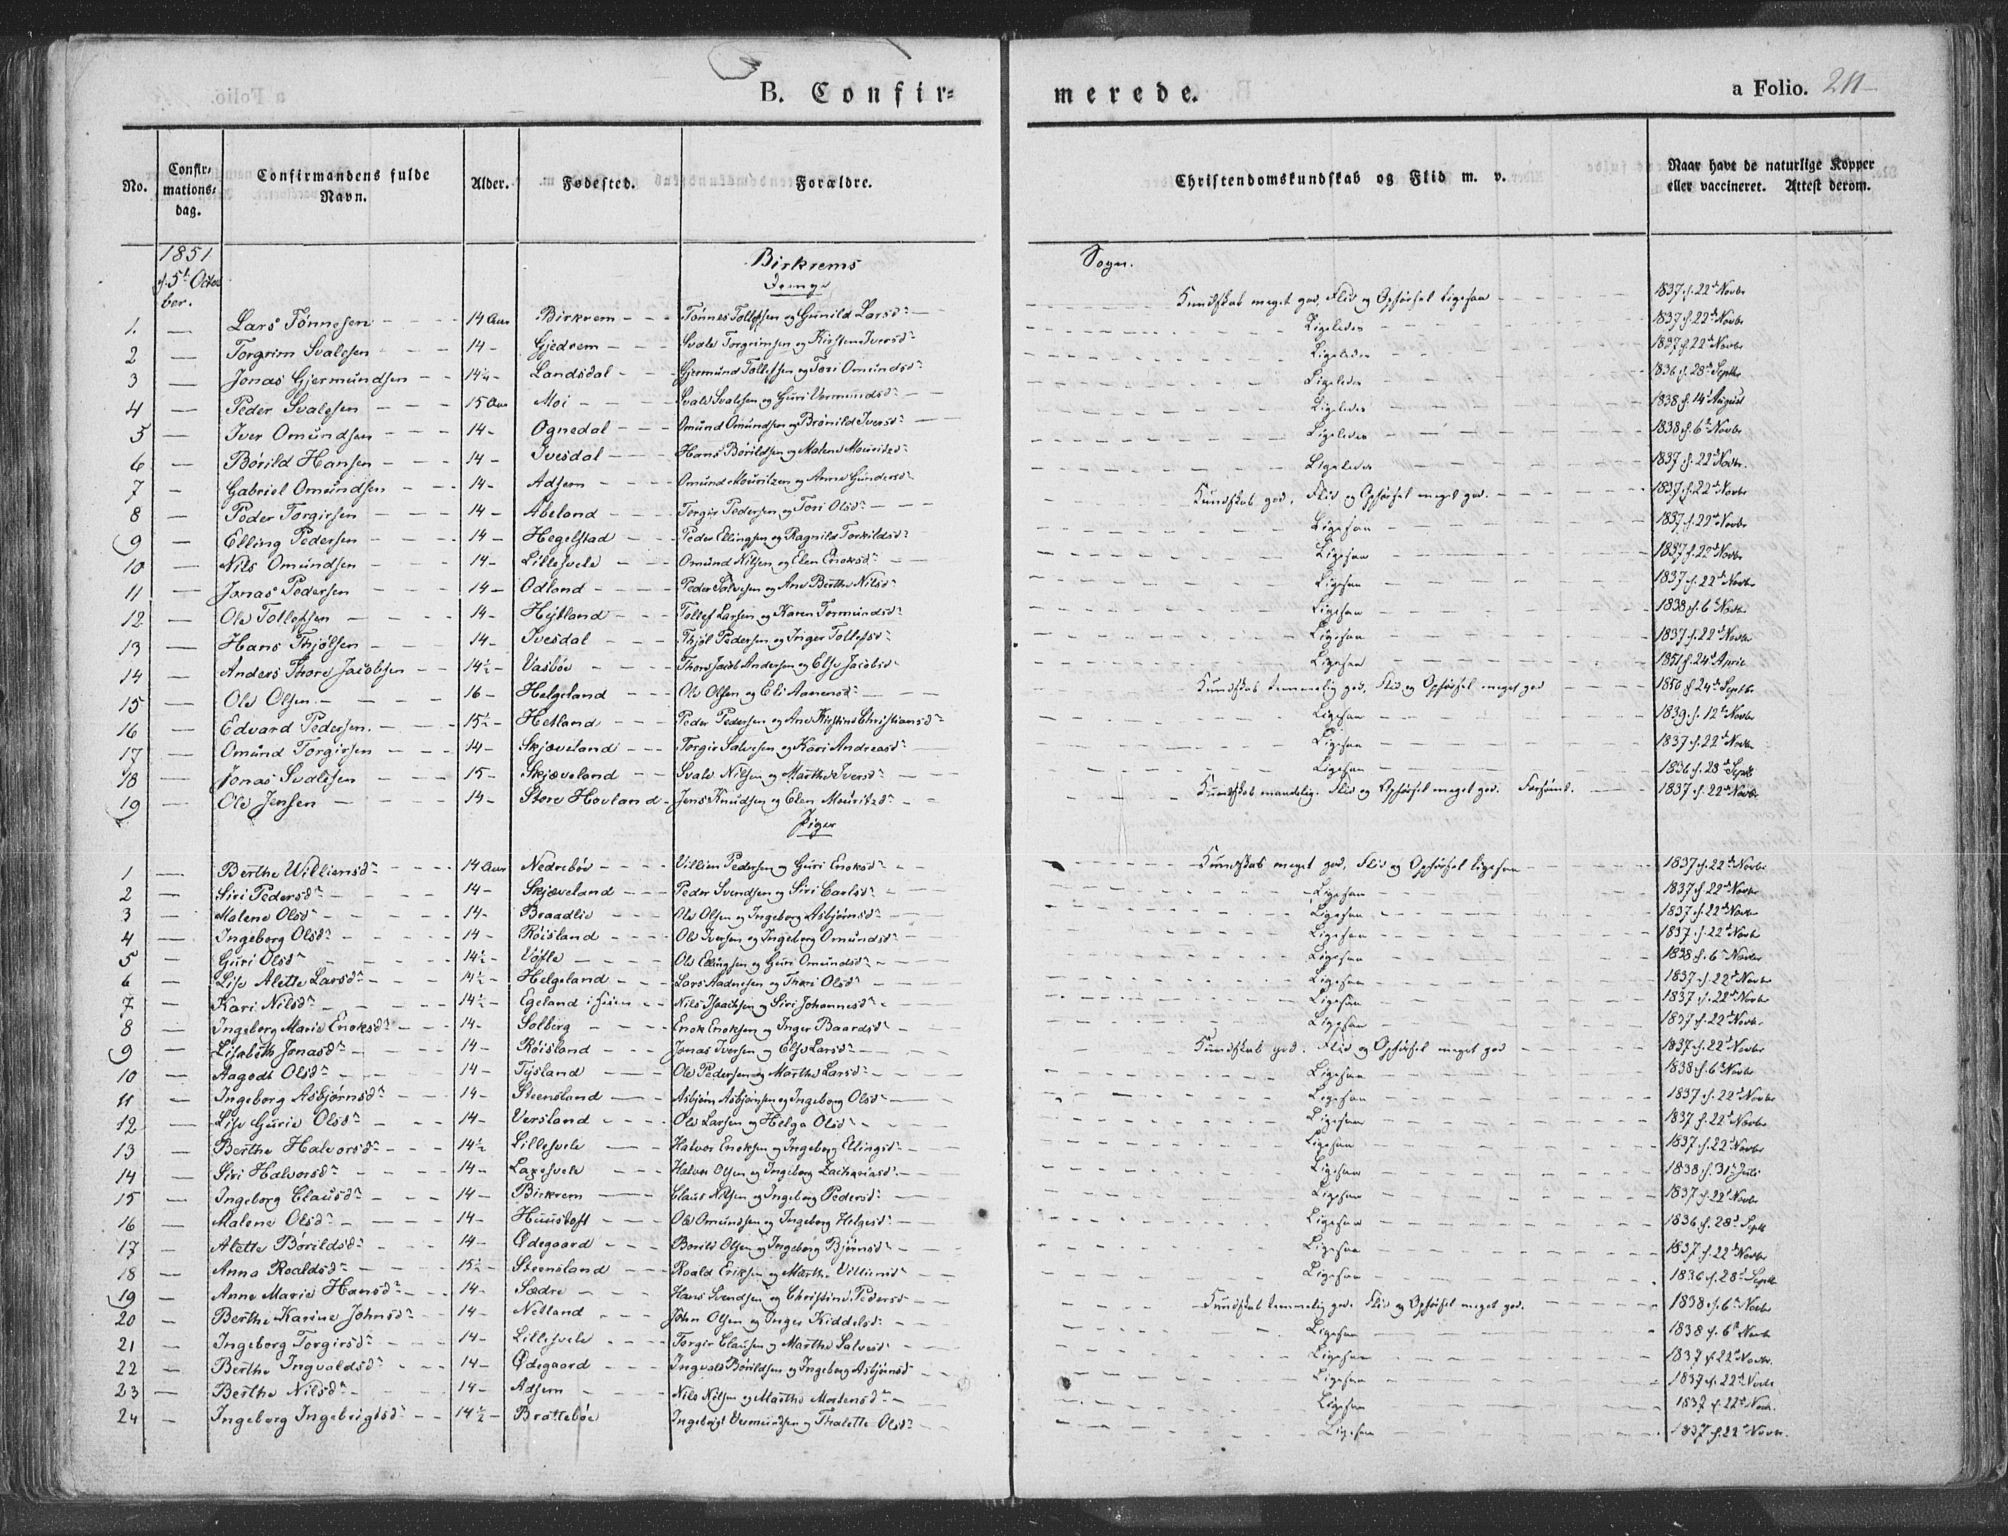 B. Confirmerede.
a Folio. 211
No. | Confirmations-dag. | Confirmandens fulde Navn. | Alder. | Fødested. | Forældre. | Christendomskundskab og Flid m. v. | Naar have de naturlige Kopper eller vaccineret. Attest derom.
1851
d. 5t October.
Birkrems Sogn.
Drenge
1. — Lars Tønnesen 14 Aar Birkrem Tønnes Tollefsen og Gunild Larsd: Kundskab meget god, Flid og Opførsel ligesaa 1837 d. 22d Novbr
2 — Torgrim Svalesen 14 Gjedrem Svale Torgrimsen og Kirsten Iversd: Ligeledes 1837 d. 22d Novbr
3 — Jonas Gjermundsen 14½ Landsdal Gjermund Tollefsen og Tori Omundsd: Ligeledes 1837 d. 22d Novbr
4 — Peder Svalesen 15 Aar Moi Svale Svalesen og Guri Vermundsd: Ligeledes 1836 d. 28d Septbr
5 — Iver Omundsen 14 Ognedal Omund Omundsen og Brønild Iversd: Ligeledes 1838 d. 14d August
6 — Børild Hansen 14 Ivesdal Hans Børildsen og Malene Mouritzd: Ligeledes 1838 d. 6t Novbr
7 — Gabriel Omundsen 14 Adsem Omund Mouritzen og Anne Gundersd: Ligeledes 1837 d. 22d Novbr.
8 — Peder Torgirsen 14 Åbeland Torgir Pedersen og Tori Olsd: Kundskab god, Flid og Opførsel meget god. 1837 d. 22d Novbr
9 — Elling Pedersen 14 Hegelstad Peder Ellingsen og Ragnild Torkildsd: Ligesaa 1837 d. 22d Novbr
10 — Nils Omundsen 14 Lillesvele Omund Nilsen og Elen Enoksd: Ligesaa 1837 d. 22d Novbr
11 — Jonas Pedersen 14 Odland Peder Salvesen og Ane Berthe Nilsd: Ligesaa 1837 d. 22d Novbr
12 — Ole Tollefsen 14 Hejtland Tollef Larsen og Karen Tormundsd: Ligesaa 1838 d. 6t Novbr
13 — Hans Thjølsen 14 Ivesdal Thjøl Pedersen og Inger Tollefsd: Ligesaa 1837 d. 22d Novbr
14 — Anders Thore Jacobsen 14½ Vasbøe Thore Jacob Andersen og Else Jacobsd: Ligesaa 1851 d. 24d April
15 — Ole Olsen 16 Helgeland Ole Olsen og Eli Aanensd: Kundskab temmelig god, Flid og Opførsel meget god 1850 d 24d Septbr
16 — Edvard Pedersen. 15½ Hetland Peder Pedersen og Ane Kirstine Christiansd: Ligesaa 1839 d. 12t Novbr
17 — Omund Torgirsen 14 Skjæveland Torgir Salvesen og Kari Andreasd: Ligesaa 1837 d. 22d Novbr
18 — Jonas Svalesen 15 Skjæveland Svale Nilsen og Marthe Iversd: Ligesaa 1836 d. 28d Septb
19 — Ole Jensen 14 Store Hovland Jens Knudsen og Elen Mouritzd: Kundskab maadelig. Flid og Opførsel meget god. Forsømt. 1837 d. 22d Novbr
Piger
1 — Berthe Williemsd: 14 Aar Nedrebøe Villiem Pedersen og Guri Enoksd: Kundskab meget god, Flid og Opførsel ligesaa 1837 d. 22d Novbr
2 — Siri Pedersd: 14 Skjæveland Peder Svendsen og Siri Carlsd: Ligesaa 1837 d. 22d Novbr
3 — Malene Olsd: 14 Braadlie Ole Olsen og Ingeborg Asbjørnsd: Ligesaa 1837 d. 22d Novbr
4 — Ingeborg Olsd: 14 Røisland Ole Iversen og Ingeborg Omundsd: Ligesaa 1837 d. 22d Novb
5 — Guri Olsd: 14½ Vøfle Ole Ellingsen og Guri Omundsd: Ligesaa 1838 d. 6t Novbr
6 — Lise Alette Larsd: 14½ Helgeland Lars Aadnesen og Thori Olsd: Ligesaa 1837 d. 22d Novbr
7 — Kari Nilsd: 14½ Egeland i Heien Nils Isachsen og Siri Johannesd: Ligesaa 1837 d. 22d Novbr
8 — Ingeborg Marie Enoksd: 14 Solberg Enok Enoksen og Inger Baardsd: Ligesaa 1837 d. 22d Novbr.
9 — Lisabeth Jonasd: 14 Røisland Jonas Iversen og Else Larsd: Kundskab god. Flid og Opførsel meget god 1837 d. 22d Novbr
10 — Aagode Olsd: 14 Tjsland Ole Pedersen og Marthe Larsd: Ligesaa 1838 d. 6t Novbr
11 — Ingeborg Asbjørnsd: 14 Steensland Asbjørn Asbjørnsen og Ingeborg Olsd: Ligesaa 1837 d. 22d Novbr
12 — Lise Gurie Olsd: 14 Versland Ole Larsen og Helga Olsd: Ligesaa 1837 d. 22d Novbr
13 — Berthe Halvorsd: 14½ Lillesvele Halvor Enoksen og Ingeborg Ellingsd: Ligesaa 1837 d. 22d Novbr
14 — Siri Halvorsd: 14 Laxesvele Halvor Olsen og Ingeborg Zachariasd: Ligesaa 1838 d. 31t Juli
15 — Ingeborg Clausd: 14 Birkrem Claus Nilsen og Ingeborg Pedersd: Ligesaa 1837 d. 22d Novbr
16 — Malene Olsd: 14 Huustoft Ole Omundsen og Ingeborg Helgesd: Ligesaa 1836 d. 28d Septb
17 — Alette Børildsd: 14 Ødegaard Børild Olsen og Ingeborg Bjørnsd: Ligesaa 1837 d. 22d Novbr
18 — Anna Roaldsd: 15½ Steensland Roald Eriksen og Marthe Villiemsd: Ligesaa 1836 d. 28d Septb
19 — Anne Marie Hansd: 14 Sædre Hans Svendsen og Christine Pedersd: Kundskab temmelig god. Flid og Opførsel meget god. 1838 d. 6t Novbr
20 — Berthe Karine Johnsd: 14 Netland John Olsen og Inger Kiddelsd: Ligesaa 1838 d. 6t Novb
21 — Ingeborg Torgirsd: 14 Lillesvele Torgir Clausen og Marthe Salvesd: Ligesaa 1837 d. 22d Novbr.
22 — Berthe Ingvaldsd: 14 Ødegaard Ingvald Børildsen og Ingeborg Asbjørnsd: Ligesaa 1837 d. 22d Novbr
23 — Berthe Nilsd: 14 Adsem Nils Nilsen og Marthe Mortensd: Ligesaa 1837 d. 22d Novb.
24 — Ingeborg Ingebrigtsd: 14½ Brattebøe Ingebrigt Vermundsen og Thalette Olsd: Ligesaa 1837 d. 22d Novbr.